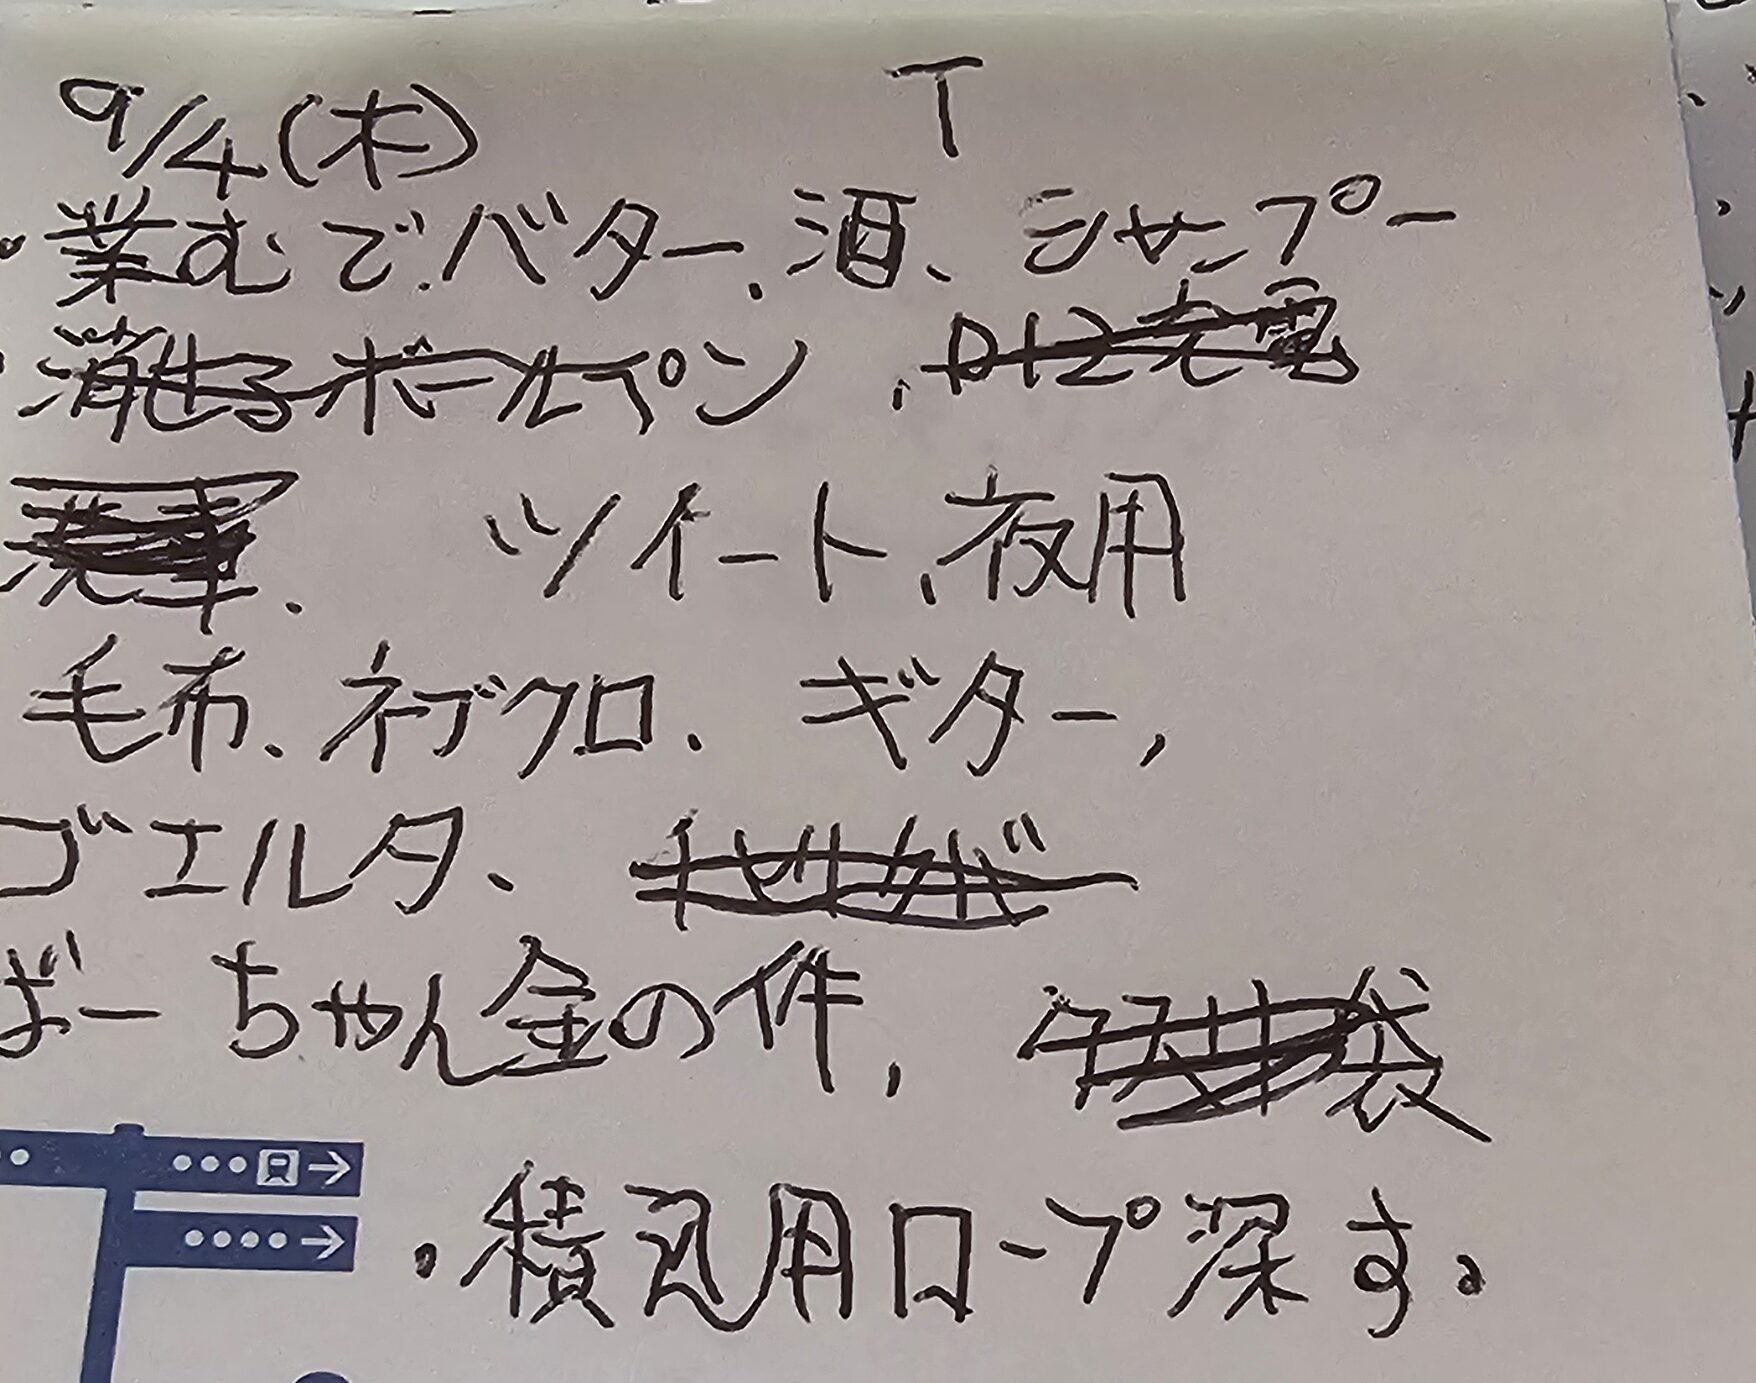 9/4(木) T
・業むで、バター、酒、シャンプー
・消せるボールペン
ツイート、夜用
毛布、ネブクロ、ギター、
ゴエルタ、
ばーちゃん金の件、
・積込用ロープ深す。